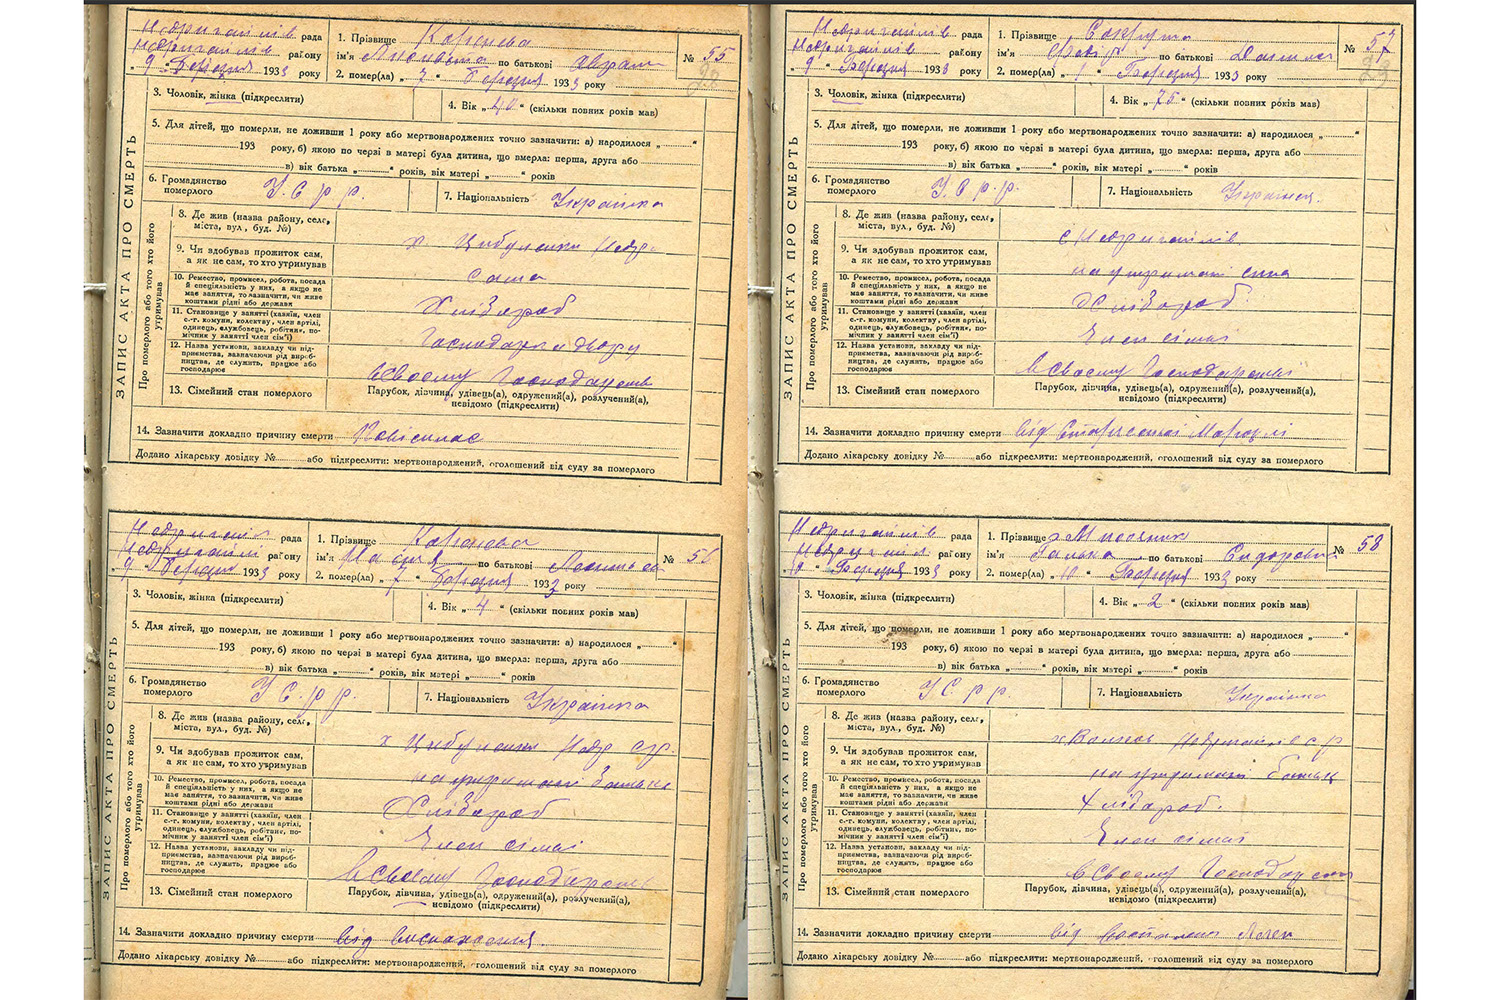 Недригайлів рада
Недригайлів району
„ 9 " Березня 1933 року
1. Прізвище
ім'я по батькові
2. помер(ла) „ 7 " Березня 1933 року
№ 55
3. Чоловік, жінка (підкреслити)
4. Вік „ 40 " (скільки повних років мав)
5. Для дітей, що померли, не доживши 1 року або мертвонароджених точно зазначити: а) народилося „ "
193 року, б) якою по черзі в матері була дитина, що вмерла: перша, друга або
в) вік батька „ " років, вік матері „ " років
6. Громадянство
померлого
У.С.Р.Р.
7. Національність Українка
ЗАПИС АКТА ПРО СМЕРТЬ
Про померлого або того хто його
утримував
8. Де жив (назва району, селе,
міста, вул, буд. №)
х Цибуленки Недр.
9. Чи здобував прожиток сам,
а як не сам, то хто утримував
сама
10. Ремество, промисел, робота, посада
й спеціяльність у них, а якщо не
має заняття, то зазначити, чи живе
коштами рідні або держави
Хлібороб
11. Становище у занятті (хазяїн, член
с.-г. комуни, колектву, член артілі,
одинець, службовець, робітник, по-
мічник у занятті член сім'ї)
Господарка двору
12. Назва установи, закладу чи під-
приємства, зазначаючи рід вироб-
ництва, де служить, працює або
господарює
в Своєму Господарстві
13. Сімейний стан померлого
Парубок, дівчина, удівець(а), одружений(а), розлучений(а),
невідомо (підкреслити)
14. Зазначити докладно причину смерти
Додано лікарську довідку № або підкреслити: мертвонароджений, оголошений від суду за померлого
Недригайлів рада
Недригайлів району
„ 9 " Березня 1933 року
1. Прізвище
ім'я по батькові
2. помер(ла) „ 7 " Березня 1933 року
№ 56
3. Чоловік, жінка (підкреслити)
4. Вік „ 4 " (скільки повних років мав)
5. Для дітей, що померли, не доживши 1 року або мертвонароджених точно зазначити: а) народилося „ "
193 року, б) якою по черзі в матері була дитина, що вмерла: перша, друга або
в) вік батька „ " років, вік матері „ " років
6. Громадянство
померлого
У.С.Р.Р.
7. Національність Українка
ЗАПИС АКТА ПРО СМЕРТЬ
Про померлого або того хто його
утримував
8. Де жив (назва району, селе,
міста, вул, буд. №)
х Цибуленки Недр.
9. Чи здобував прожиток сам,
а як не сам, то хто утримував
на утриманні батька
10. Ремество, промисел, робота, посада
й спеціяльність у них, а якщо не
має заняття, то зазначити, чи живе
коштами рідні або держави
Хлібороб
11. Становище у занятті (хазяїн, член
с.-г. комуни, колектву, член артілі,
одинець, службовець, робітник, по-
мічник у занятті член сім'ї)
Член сімї
12. Назва установи, закладу чи під-
приємства, зазначаючи рід вироб-
ництва, де служить, працює або
господарює
в Своєму Господарстві
13. Сімейний стан померлого
Парубок, дівчина, удівець(а), одружений(а), розлучений(а),
невідомо (підкреслити)
14. Зазначити докладно причину смерти від виснаження.
Додано лікарську довідку № або підкреслити: мертвонароджений, оголошений від суду за померлого
Недригайлів рада
Недригайлів району
„ 9 " Березня 1933 року
1. Прізвище
ім'я по батькові
2. помер(ла) „ " Березня 1933 року
№ 57
3. Чоловік, жінка (підкреслити)
4. Вік „ 75 " (скільки повних років мав)
5. Для дітей, що померли, не доживши 1 року або мертвонароджених точно зазначити: а) народилося „ "
193 року, б) якою по черзі в матері була дитина, що вмерла: перша, друга або
в) вік батька „ " років, вік матері „ " років
6. Громадянство
померлого
У.С.Р.Р.
7. Національність Українец.
ЗАПИС АКТА ПРО СМЕРТЬ
Про померлого або того хто його
утримував
8. Де жив (назва району, селе,
міста, вул, буд. №)
с Недригайлів
9. Чи здобував прожиток сам,
а як не сам, то хто утримував
на утриман сина
10. Ремество, промисел, робота, посада
й спеціяльність у них, а якщо не
має заняття, то зазначити, чи живе
коштами рідні або держави
Хлібороб
11. Становище у занятті (хазяїн, член
с.-г. комуни, колектву, член артілі,
одинець, службовець, робітник, по-
мічник у занятті член сім'ї)
Член сімї
12. Назва установи, закладу чи під-
приємства, зазначаючи рід вироб-
ництва, де служить, працює або
господарює
в Своєму Господарстві
13. Сімейний стан померлого
Парубок, дівчина, удівець(а), одружений(а), розлучений(а),
невідомо (підкреслити)
14. Зазначити докладно причину смерти від
Додано лікарську довідку № або підкреслити: мертвонароджений, оголошений від суду за померлого
Недригайлів рада
Недригайлів району
„ 10 " Березня 1933 року
1. Прізвище Мисочник
ім'я Галька по батькові Сидоровна
2. помер(ла) „ 10 " Березня 1933 року
№ 58
3. Чоловік, жінка (підкреслити)
4. Вік „ 2 " (скільки повних років мав)
5. Для дітей, що померли, не доживши 1 року або мертвонароджених точно зазначити: а) народилося „ "
193 року, б) якою по черзі в матері була дитина, що вмерла: перша, друга або
в) вік батька „ " років, вік матері „ " років
6. Громадянство
померлого
УСРР.
7. Національність Українка
ЗАПИС АКТА ПРО СМЕРТЬ
Про померлого або того хто його
утримував
8. Де жив (назва району, селе,
міста, вул, буд. №)
9. Чи здобував прожиток сам,
а як не сам, то хто утримував
на утриманні батьк
10. Ремество, промисел, робота, посада
й спеціяльність у них, а якщо не
має заняття, то зазначити, чи живе
коштами рідні або держави
Хлібороб.
11. Становище у занятті (хазяїн, член
с.-г. комуни, колектву, член артілі,
одинець, службовець, робітник, по-
мічник у занятті член сім'ї)
Член сімї
12. Назва установи, закладу чи під-
приємства, зазначаючи рід вироб-
ництва, де служить, працює або
господарює
в Своєму Господарстві
13. Сімейний стан померлого
Парубок, дівчина, удівець(а), одружений(а), розлучений(а),
невідомо (підкреслити)
14. Зазначити докладно причину смерти від
Додано лікарську довідку № або підкреслити: мертвонароджений, оголошений від суду за померлого